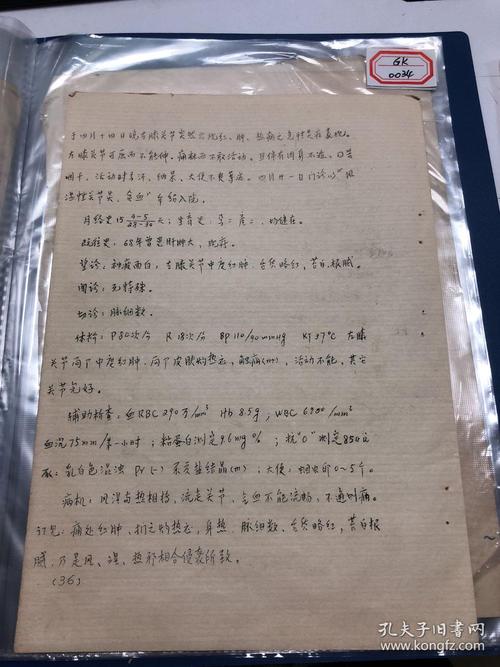 GK
0034
于四月十四日晚右膝关节突然出现红、肿、热痛之急性炎症表现。
右膝关节可屈而不能伸。痛剧而不敢活动。且伴有周身不适、口苦
咽干、活动时多汗、纳差、大便不爽等症。四月廿一日门诊以"风
湿性关节炎、贫血"介绍入院。
月经史15 4-5/28-30 天;生育史:孕二产二、均健在。
既往史:68年曾患肝肿大,现存。
望诊:神疲面白,右膝关节中度红肿,舌质略红,苔白根腻。
闻诊:无特殊。
切诊:脉细数。
体检:P 80次/分 R 18次/分 BP 110/90mmHg KT 37℃ 右膝
关节周围中度红肿,周围皮肤灼热感,触痛(卅),活动不能,其它
关节完好。
辅助检查:血RBC 290万/mm³ Hb 8.5g;WBC 6900/mm³
血沉75mm/第一小时;粘蛋白测定96mg%;抗"O"测定850u
尿:乳白色混浊 Pr(-) 尿酸盐结晶(卅);大便:蛔虫卵0~5个。
病机:风湿与热相搏,流走关节,气血不能流畅,不通则痛。
讨论:痛处红肿,扪之灼热感,身热、脉细数、舌质略红,苔白根
腻,乃是风、湿、热邪相合侵袭所致。
(36)
孔夫子旧书网
www.kongfz.com